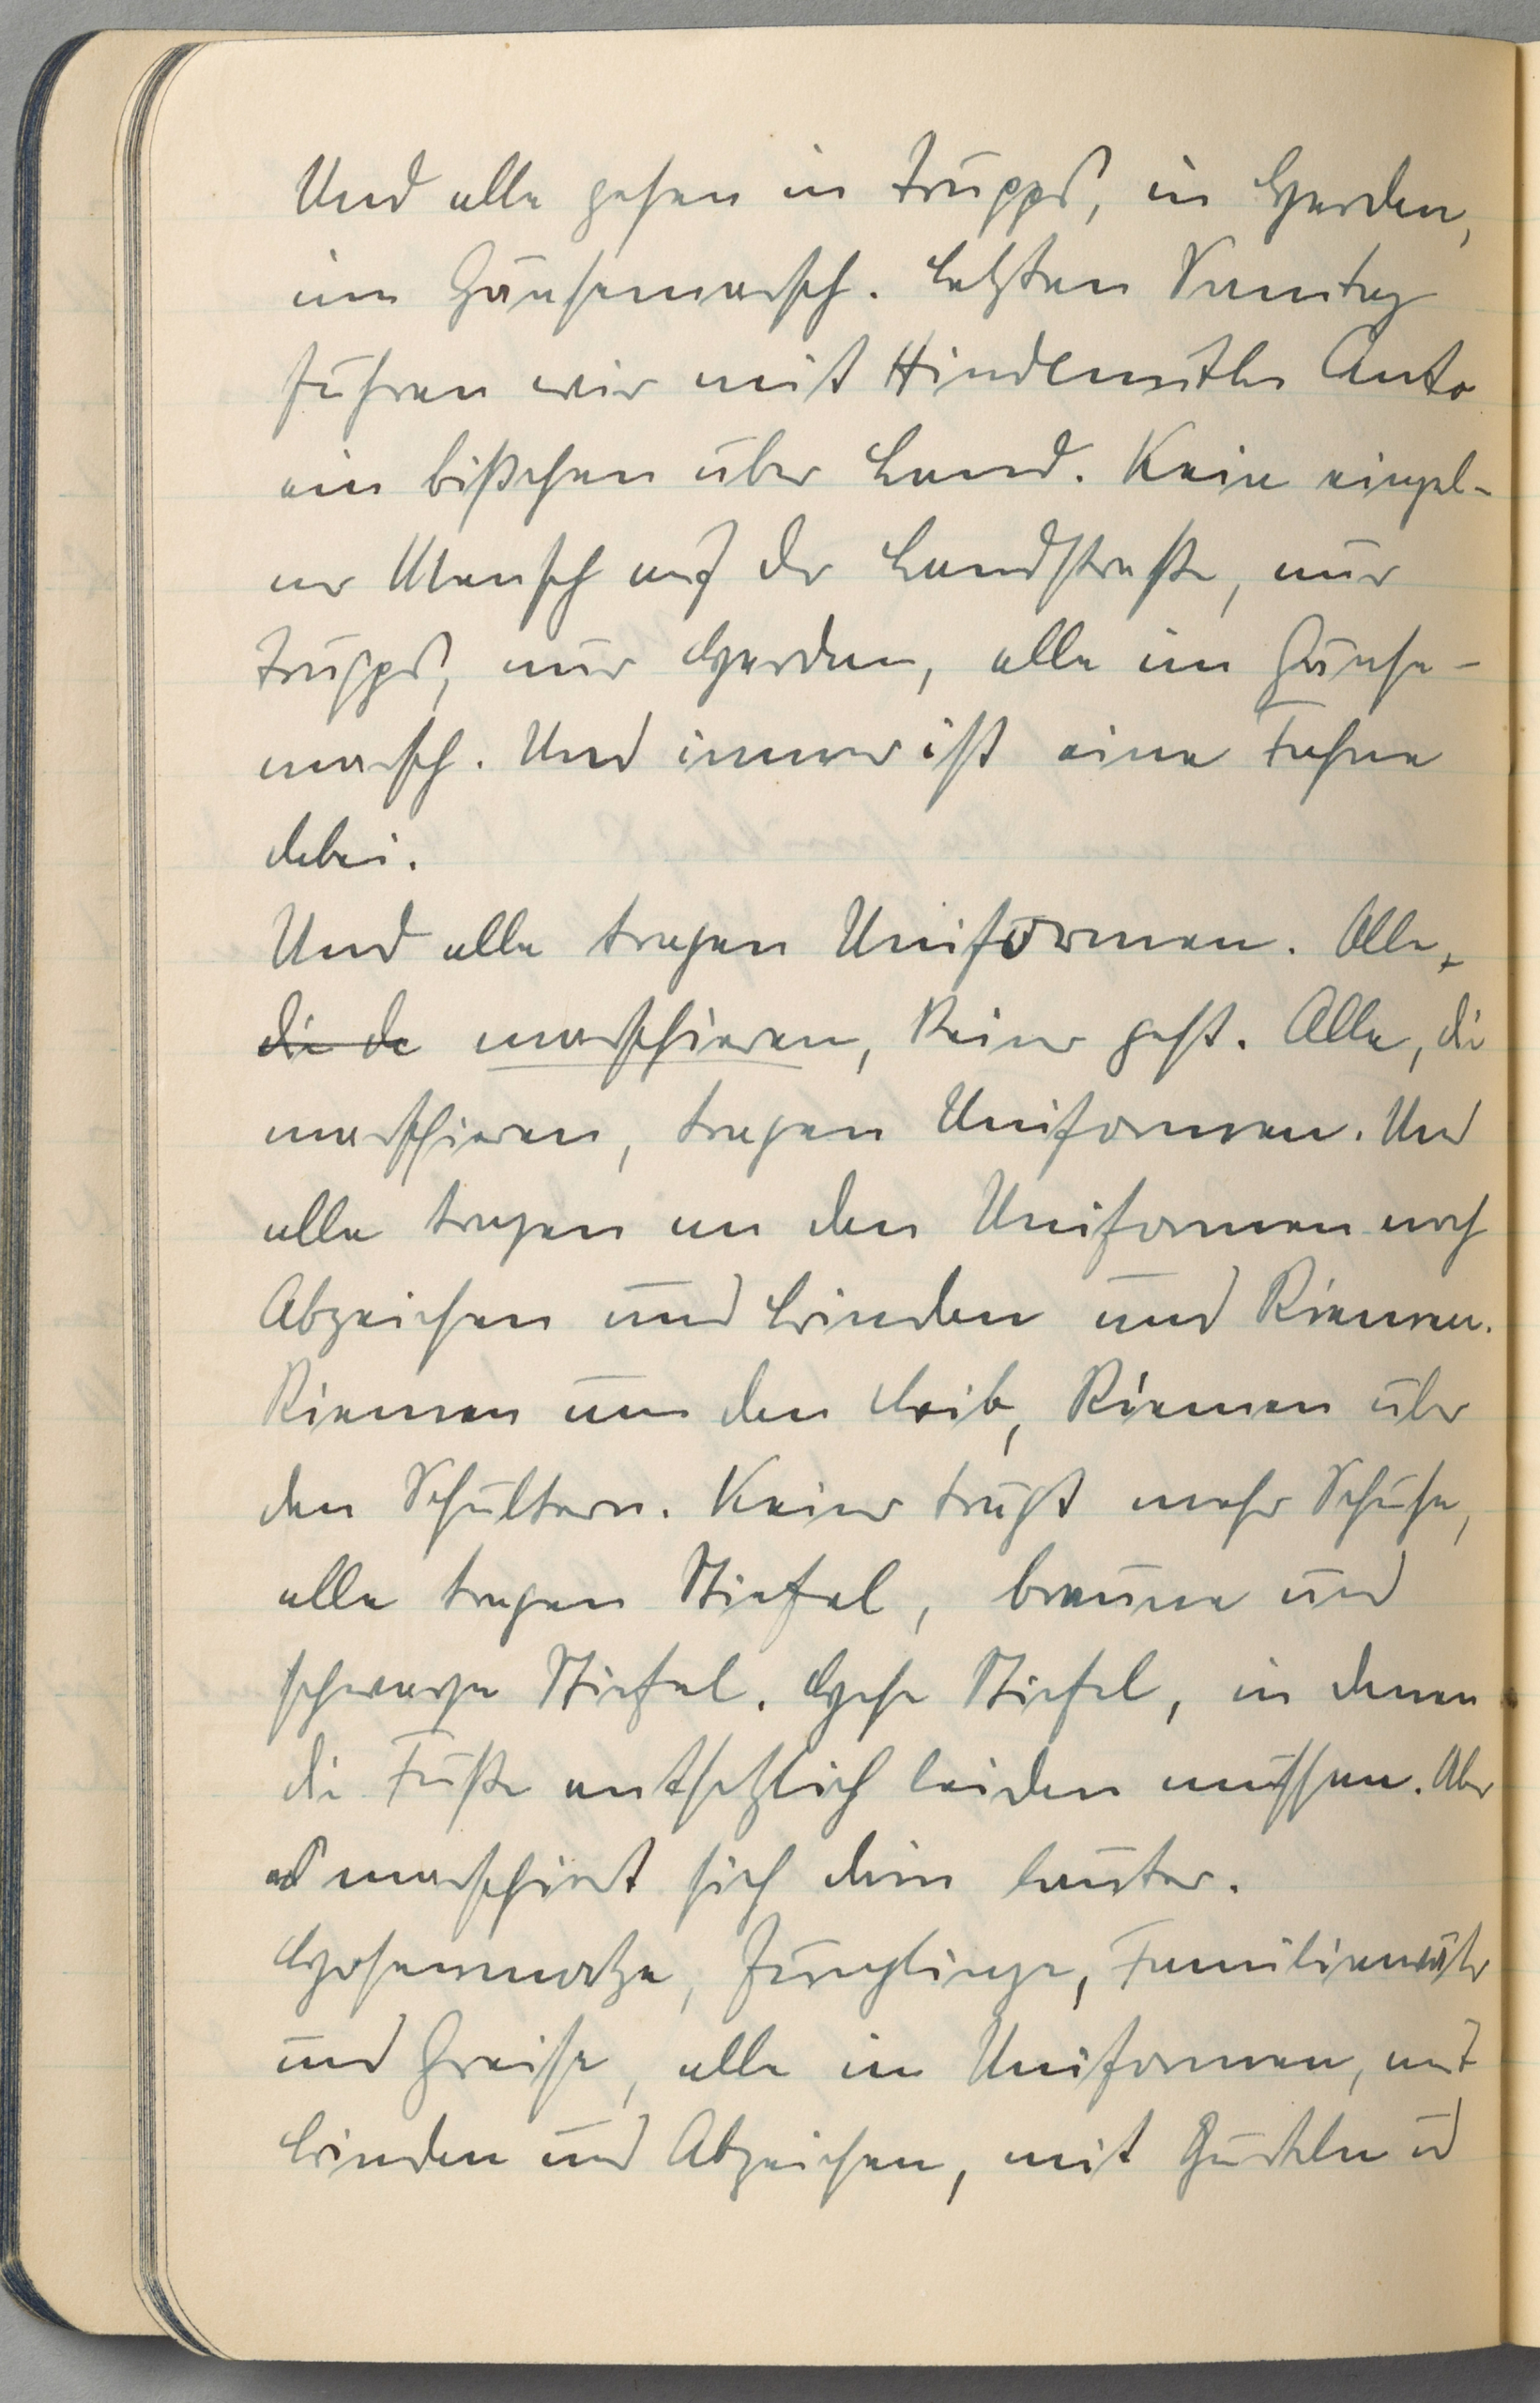 Und alle gehen in Trupps, in Horden,
im Gänsemarsch. Letzten Samstag
fuhren wir mit Hindemiths Auto
ein bißchen über Land. Kein einzel-
ner Mensch auf der Landstraße, nur
Trupps, nur Horden, alle im Gänse-
marsch. Und immer ist eine Fahne
dabei.
Und alle tragen Uniformen. Alle,
die da marschieren, keiner geht. Alle, die
marschieren, tragen Uniformen. Und
alle tragen an den Uniformen noch
Abzeichen und Binden und Riemen.
Riemen um den Leib, Riemen über
den Schultern. Keiner trägt mehr Schuhe,
alle tragen Stiefel, braune und
schwarze Stiefel. Hohe Stiefel, in denen
die Füße entsetzlich leiden müssen. Aber
es marschiert sich drin lauter.
Hosenmatze, Jünglinge, Familienväter
und Greise, alle in Uniformen, mit
Binden und Abzeichen, mit Gürteln u